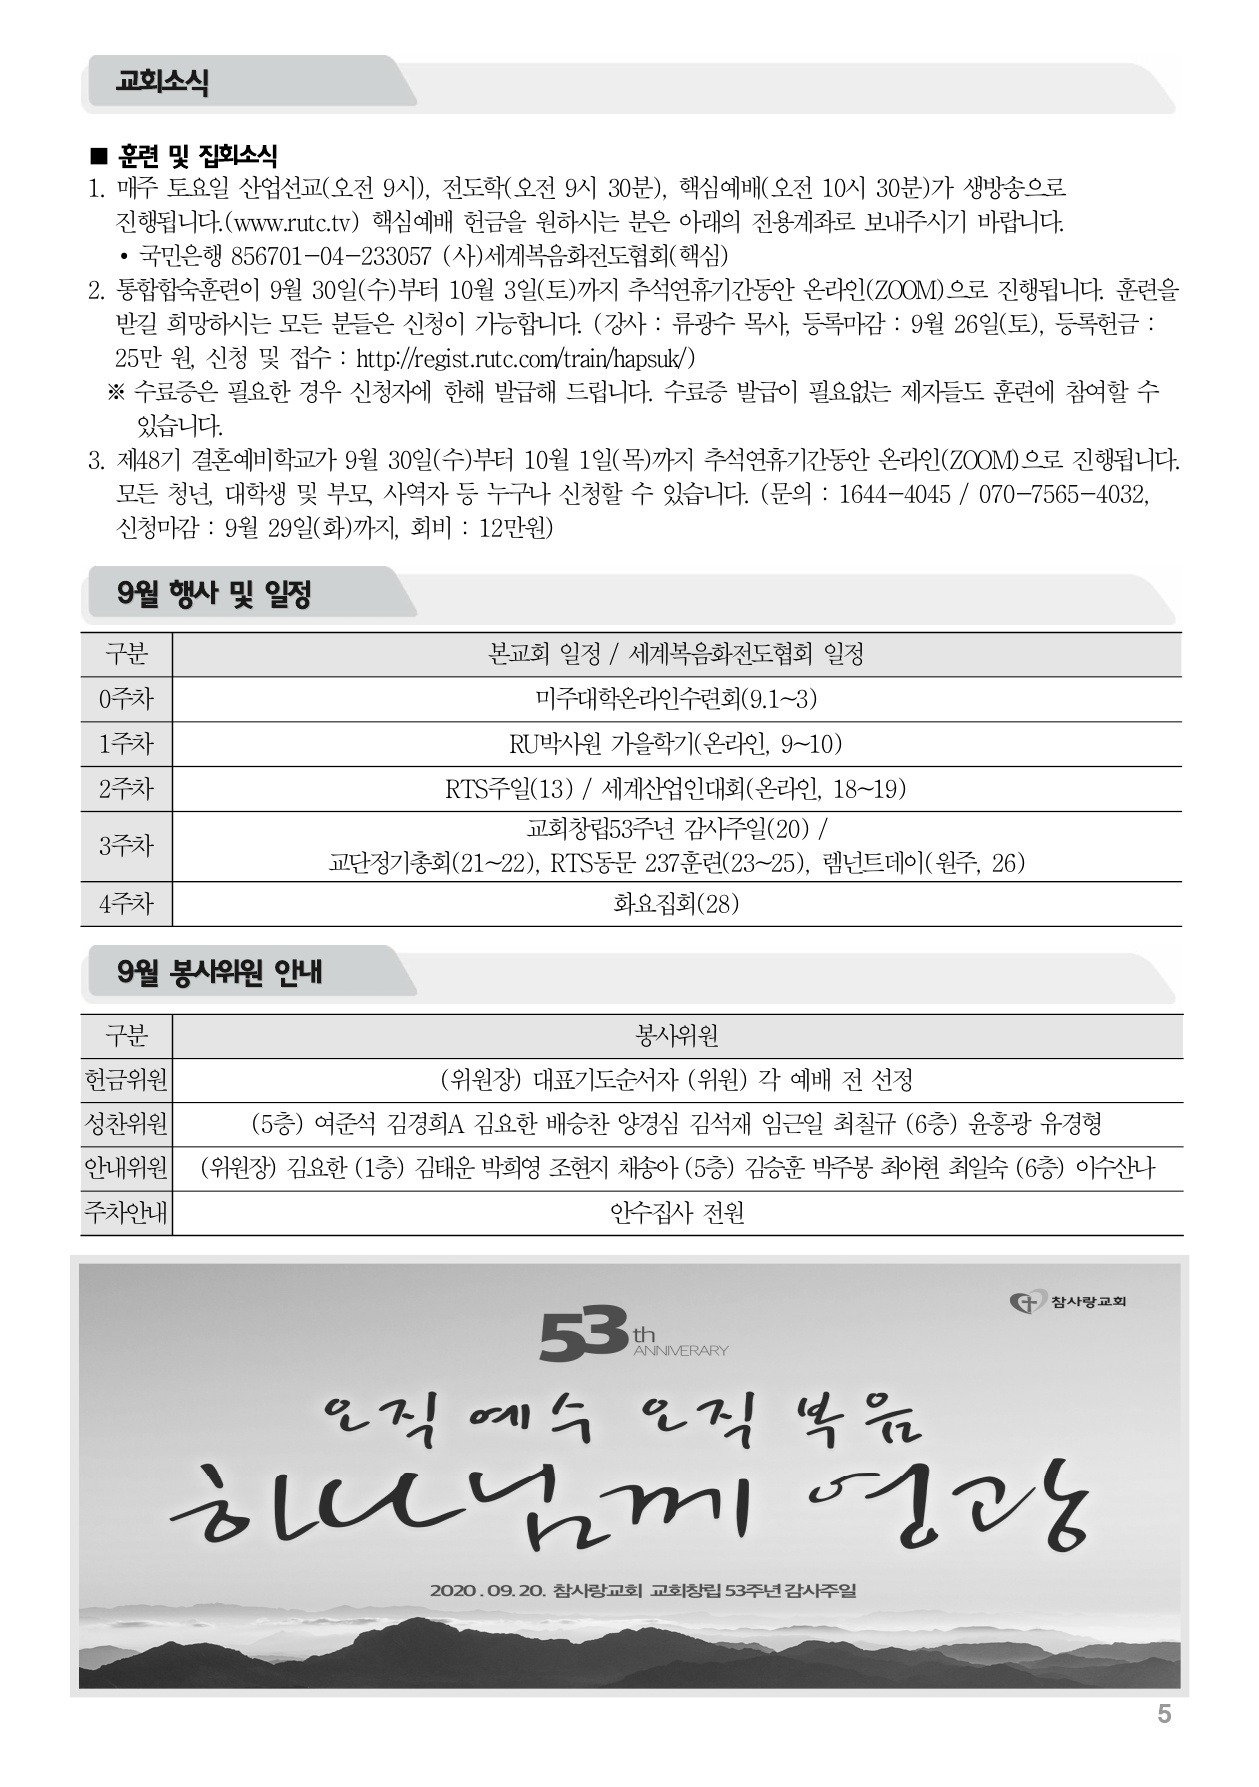 교회소식
■ 훈련 및 집회소식
1. 매주 토요일 산업선교(오전 9시), 전도학(오전 9시 30분), 핵심예배(오전 10시 30분)가 생방송으로
진행됩니다.(www.rutc.tv) 핵심예배 헌금을 원하시는 분은 아래의 전용계좌로 보내주시기 바랍니다.
• 국민은행 856701-04-233057 (사)세계복음화전도협회(핵심)
2. 통합합숙훈련이 9월 30일(수)부터 10월 3일(토)까지 추석연휴기간동안 온라인(ZOOM)으로 진행됩니다. 훈련을
받길 희망하시는 모든 분들은 신청이 가능합니다. (강사 : 류광수 목사, 등록마감 : 9월 26일(토), 등록헌금 :
25만 원, 신청 및 접수 : http://regist.rutc.com/train/hapsuk/)
※ 수료증은 필요한 경우 신청자에 한해 발급해 드립니다. 수료증 발급이 필요없는 제자들도 훈련에 참여할 수
있습니다.
3. 제48기 결혼예비학교가 9월 30일(수)부터 10월 1일(목)까지 추석연휴기간동안 온라인(ZOOM)으로 진행됩니다.
모든 청년, 대학생 및 부모, 사역자 등 누구나 신청할 수 있습니다. (문의 : 1644-4045 / 070-7565-4032,
신청마감 : 9월 29일(화)까지, 회비 : 12만원)
9월 행사 및 일정
구분 본교회 일정 / 세계복음화전도협회 일정
0주차 미주대학온라인수련회(9.1~3)
1주차 RU박사원 가을학기(온라인, 9~10)
2주차 RTS주일(13) / 세계산업인대회(온라인, 18~19)
3주차 교회창립53주년 감사주일(20) /
교단정기총회(21~22), RTS동문 237훈련(23~25), 렘넌트데이(원주, 26)
4주차 화요집회(28)
9월 봉사위원 안내
구분 봉사위원
헌금위원 (위원장) 대표기도순서자 (위원) 각 예배 전 선정
성찬위원 (5층) 여준석 김경희A 김요한 배승찬 양경심 김석재 임근일 최칠규 (6층) 윤흥광 유경형
안내위원 (위원장) 김요한 (1층) 김태운 박희영 조현지 채송아 (5층) 김승훈 박주봉 최아현 최일숙 (6층) 이수산나
주차안내 안수집사 전원
참사랑교회
53th
ANNIVERARY
오직 예수 오직 복음
하나님께 영광
2020.09.20. 참사랑교회 교회창립 53주년 감사주일
5